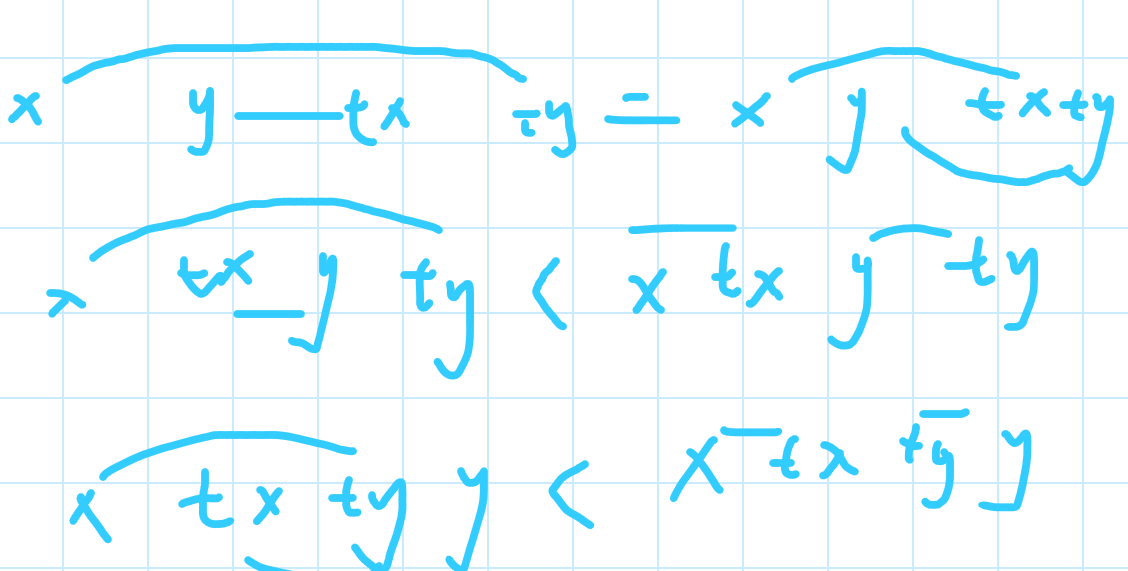 x y — tx ty = x y tx ty
x tx y ty < x tx y ty
x tx ty y < x tx ty y